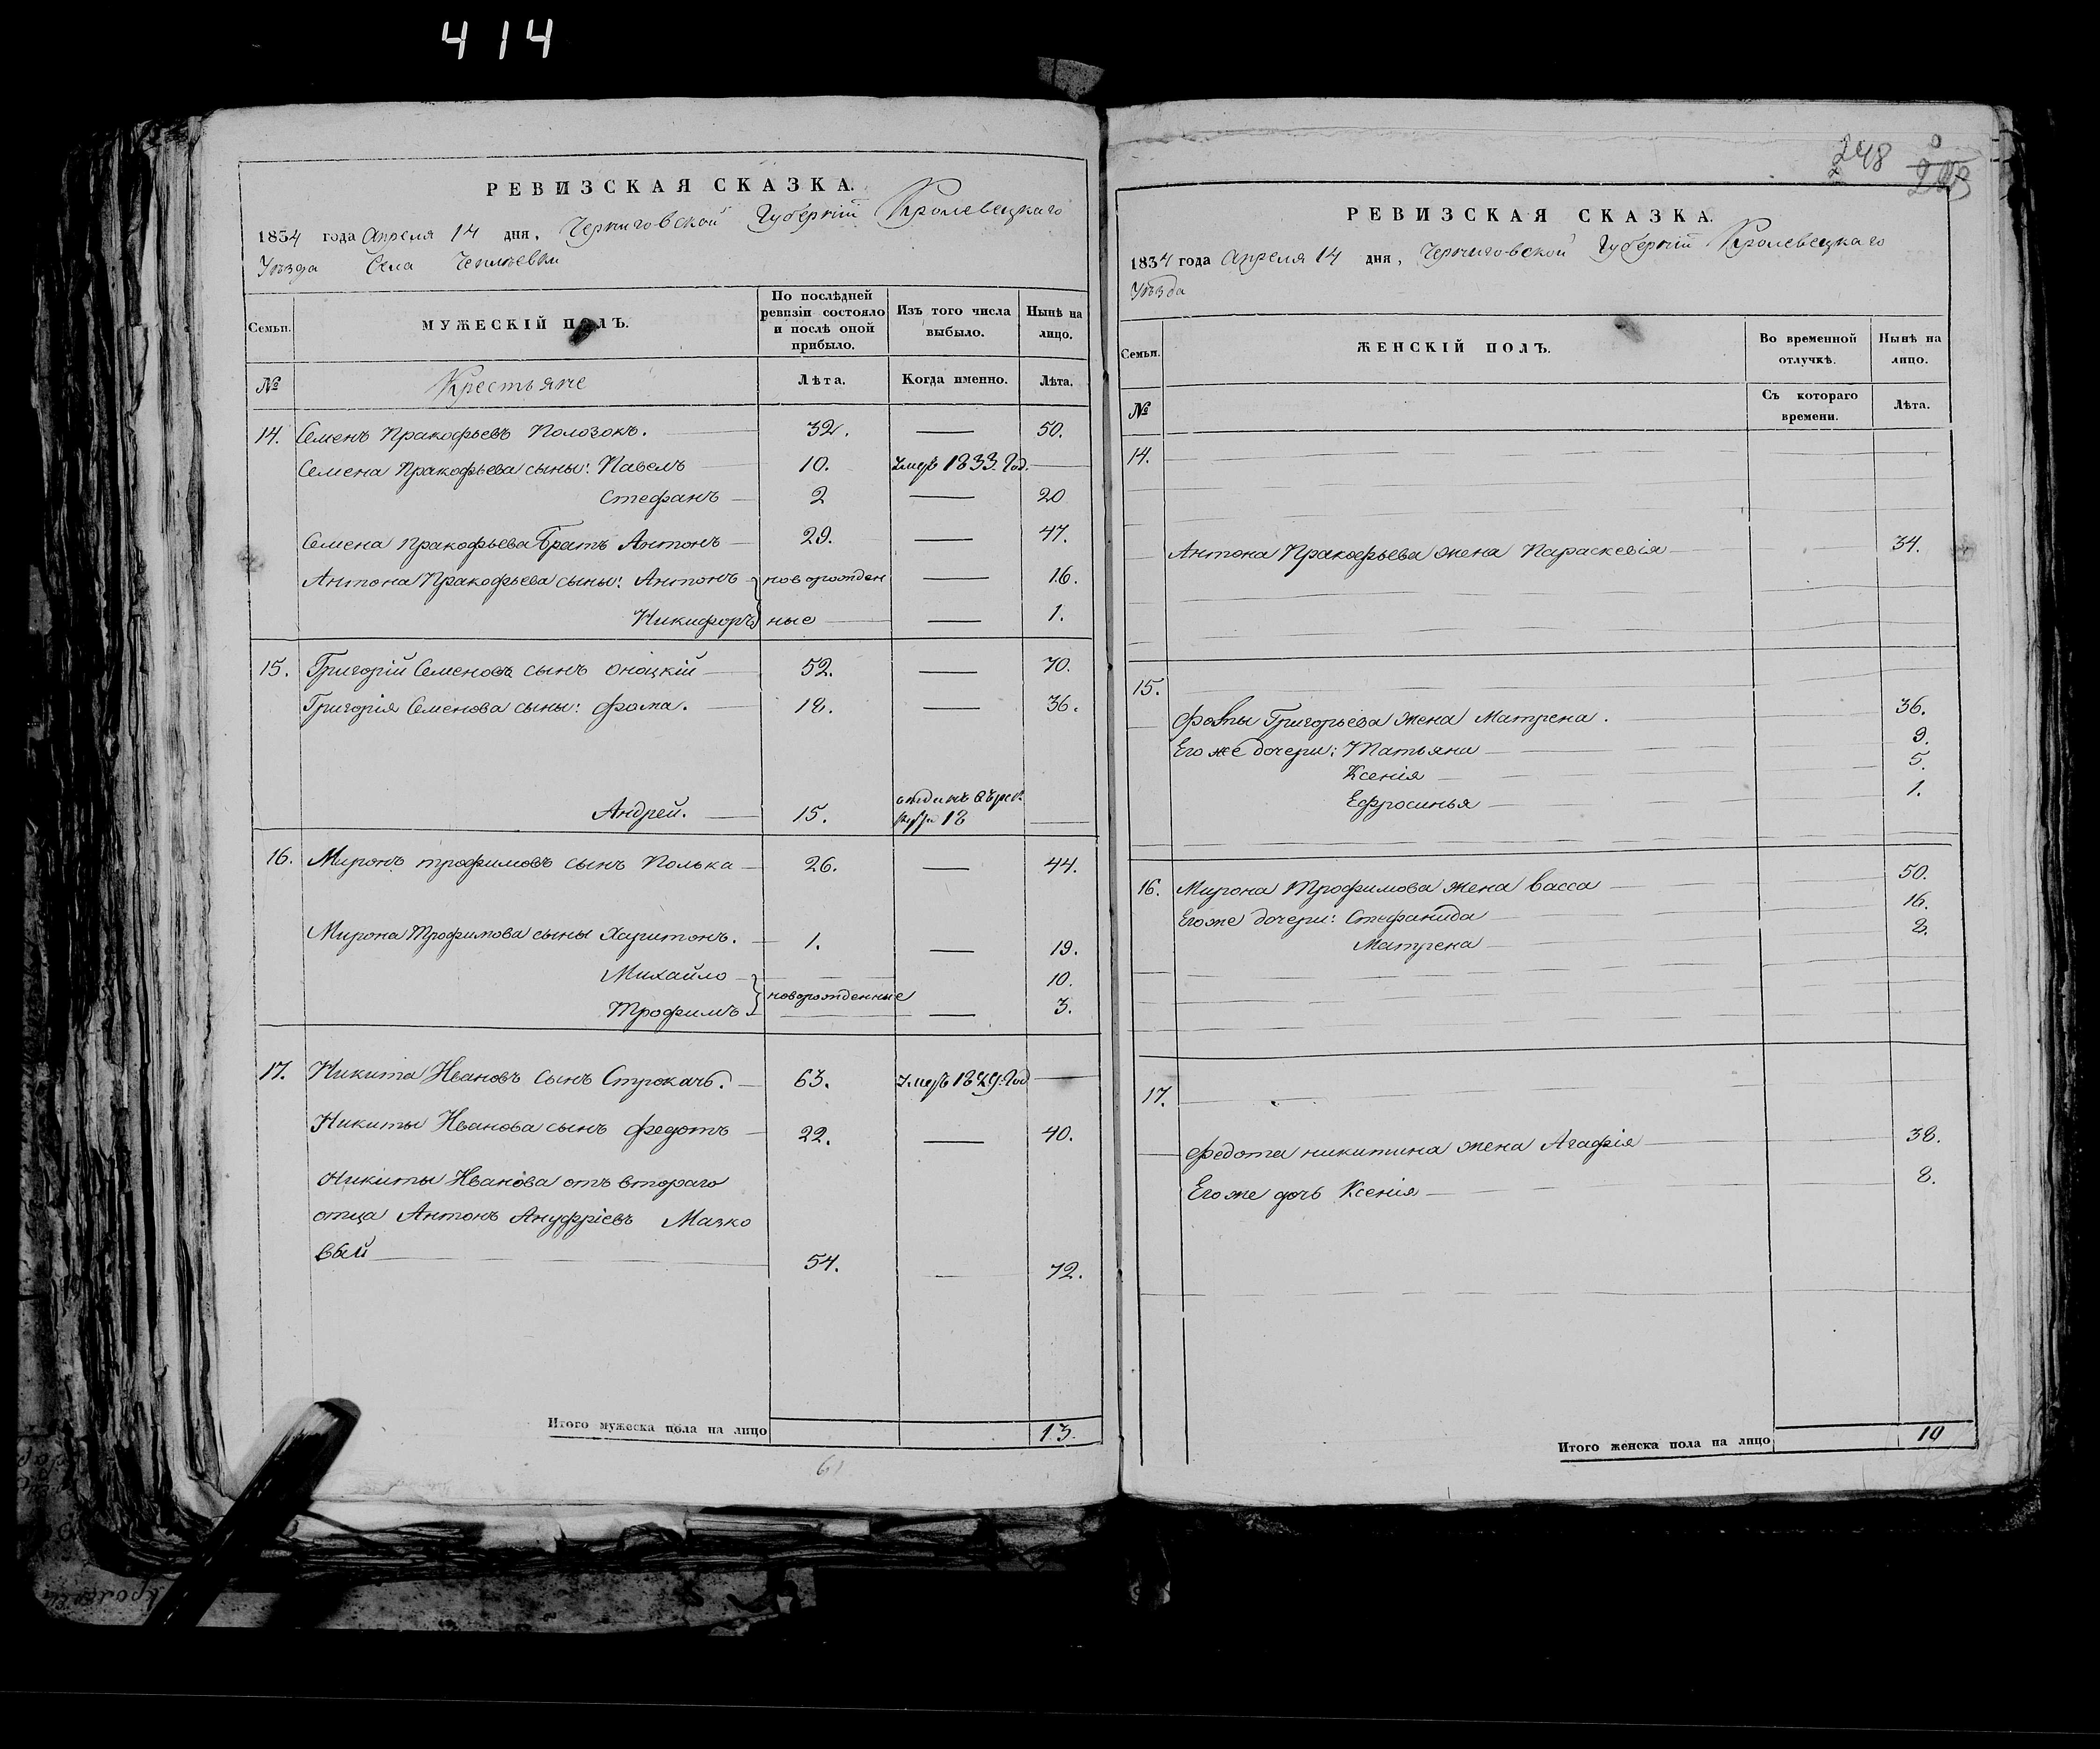 414
РЕВИЗСКАЯ СКАЗКА.
1834 года Апреля 14 дня, Черниговской Губернiи Кролевецкаго
Уѣзда Села
Семьи.
МУЖЕСКIЙ ПОЛЪ.
По послѣдней ревизiи состояло и послѣ оной прибыло.
Изъ того числа выбыло.
Нынѣ на лицо.
№
Крестьяне
Лѣта.
Когда именно.
Лѣта.
14. Семенъ Пракофьевъ Полозокъ. 32. 50.
Семена Пракофьева сыны: Павелъ 10. умеръ 1833. Год.
Стефанъ 2 20
Семена Пракофьева Братъ Антонъ 29. 47.
Антона Пракофьева сыны: Антонъ новорожден 16.
Никифоръ ные 1.
15. Григорiй Семеновъ сынъ Оноцкiй 52. 70.
Григорiя Семенова сыны: Фома. 18. 36.
Андрей. 15. отданъ въ 18
16. Миронъ Трофимовъ сынъ Полька 26. 44.
Мирона Трофимова сыны Харитонъ. 1. 19.
Михайло 10.
новорожденные
Трофимъ 3.
17. Никита Ивановъ сынъ Строкачъ. 63. умеръ 1829. Год
Никиты Иванова сынъ Федотъ 22. 40.
Никиты Иванова отъ втораго
отца Антонъ Ануфрiевъ Мазко
вый 54. 72.
Итого мужеска пола на лицо 13.
248
РЕВИЗСКАЯ СКАЗКА.
1834 года Апреля 14 дня, Черниговской Губернiи Кролевецкаго
Уѣзда
Семьи.
ЖЕНСКIЙ ПОЛЪ.
Во временной отлучкѣ.
Нынѣ на лицо.
№
Съ котораго времени.
Лѣта.
14.
Антона Пракофьева жена Параскевiя 34.
15.
Фомы Григорьева жена Матрена. 36.
Его же дочери: Татьяна 9.
Ксенiя 5.
Ефросинья 1.
16. Мирона Трофимова жена Васса 50.
Его же дочери: Стефанида 16.
Матрена 8.
17.
Федота Никитина жена Агафiя 38.
Его же дочь Ксенiя 8.
Итого женска пола на лицо 10